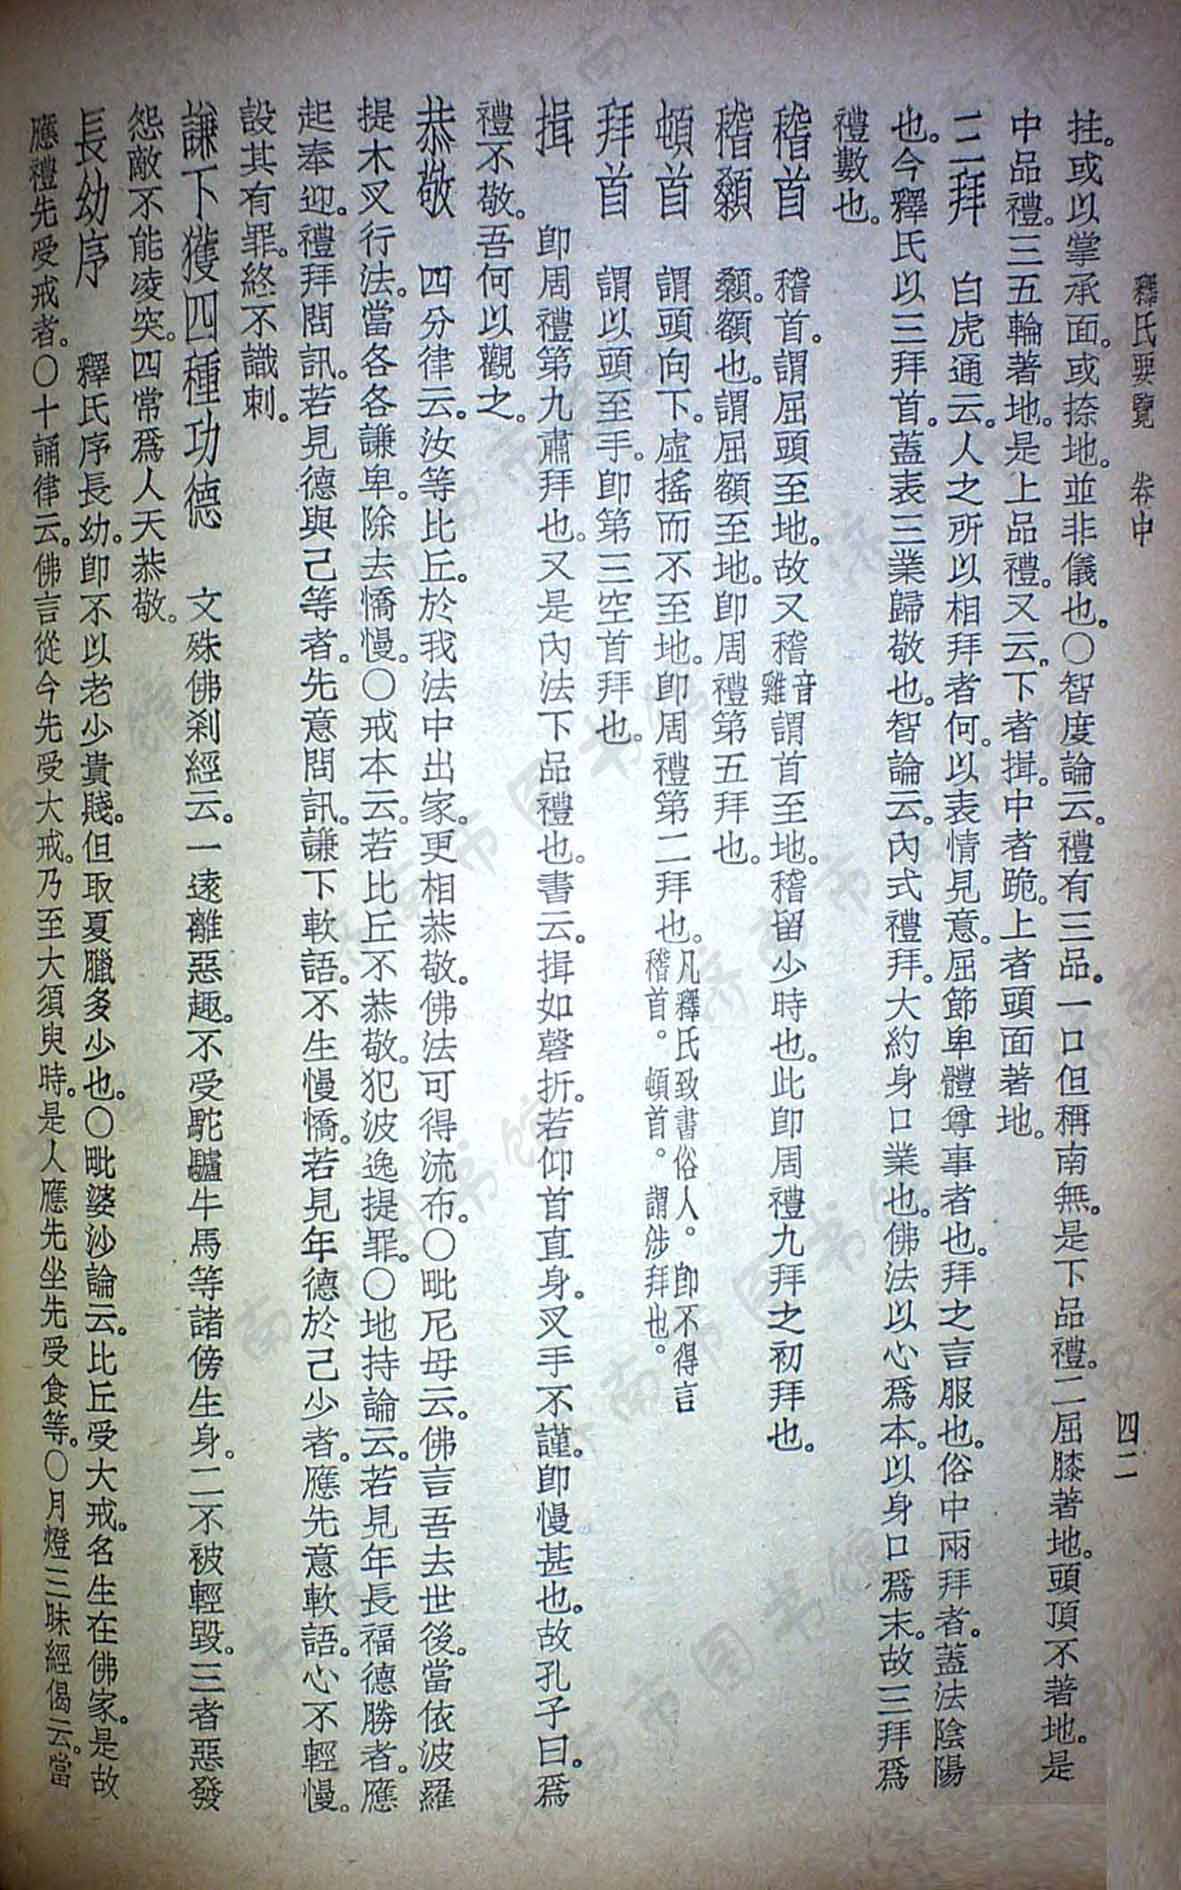 釋氏要覽　卷中　四二
拄。或以掌承面。或捺地。並非儀也。○智度論云。禮有三品。一口但稱南無。是下品禮。二屈膝著地。頭頂不著地。是
中品禮。三五輪著地。是上品禮。又云。下者揖。中者跪。上者頭面著地。
三拜　白虎通云。人之所以相拜者何。以表情見意。屈節卑體尊事者也。拜之言服也。俗中兩拜者。蓋法陰陽
也。今釋氏以三拜首。蓋表三業歸敬也。智論云。內式禮拜。大約身口業也。佛法以心為本。以身口為末。故三拜為
禮數也。
稽首　稽首。謂屈頭至地。故又稽音雞謂首至地。稽留少時也。此即周禮九拜之初拜也。
稽顙　顙。額也。謂屈額至地。即周禮第五拜也。
頓首　謂頭向下。虛搖而不至地。即周禮第二拜也。凡釋氏致書俗人。即不得言稽首。頓首。謂涉拜也。
拜首　謂以頭至手。即第三空首拜也。
揖　即周禮第九肅拜也。又是內法下品禮也。書云。揖如磬折。若仰首直身。叉手不謹。即慢甚也。故孔子曰。為
禮不敬。吾何以觀之。
恭敬　四分律云。汝等比丘。於我法中出家。更相恭敬。佛法可得流布。○毗尼母云。佛言吾去世後。當依波羅
提木叉行法。當各各謙卑。除去憍慢。○戒本云。若比丘不恭敬。犯波逸提罪。○地持論云。若見年長福德勝者。應
起奉迎。禮拜問訊。若見德與己等者。先意問訊。謙下軟語。不生慢憍。若見年德於己少者。應先意軟語。心不輕慢。
設其有罪。終不識刺。
謙下獲四種功德　文殊佛剎經云。一遠離惡趣。不受駝驢牛馬等諸傍生身。二不被輕毀。三者惡發
怨敵不能凌突。四常為人天恭敬。
長幼序　釋氏序長幼。即不以老少貴賤。但取夏臘多少也。○毗婆沙論云。比丘受大戒。名生在佛家。是故
應禮先受戒者。○十誦律云。佛言從今先受大戒。乃至大須臾時。是人應先坐先受食等。○月燈三昧經偈云。當